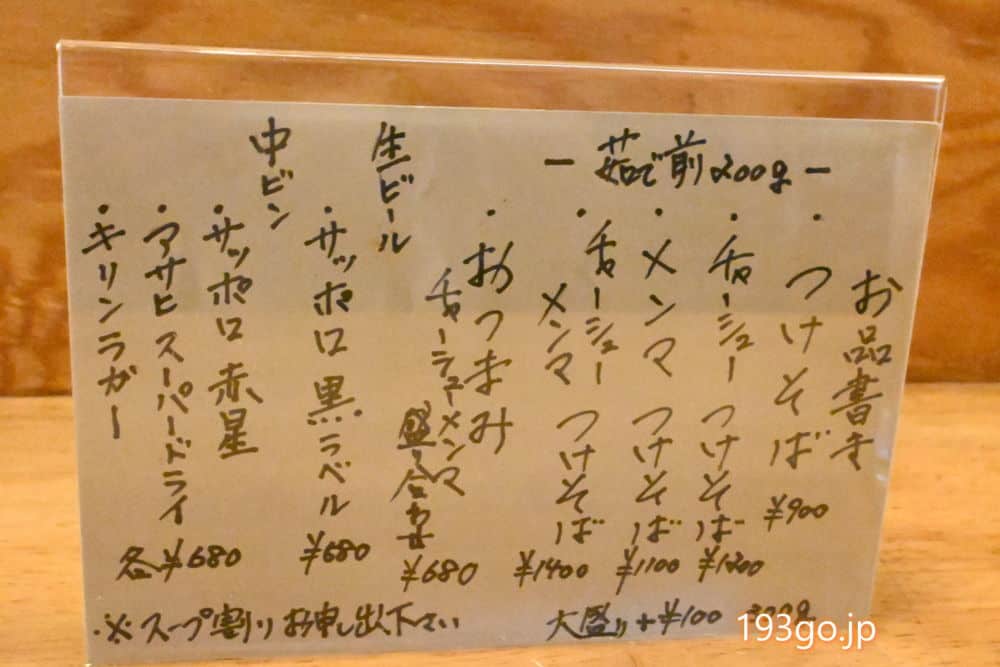 お品書き
― 茹で前200g ―
・つけそば ¥900
・チャーシューつけそば ¥1200
・メンマつけそば ¥1100
・チャーシューメンマつけそば ¥1400
・おつまみ
チャーシューメンマ盛り合わせ ¥680
生ビール
・サッポロ黒ラベル ¥680
中ビン
・サッポロ赤星
・アサヒスーパードライ
・キリンラガー
各¥680
大盛り+¥100
・※スープ割りお申し出下さい
193go.jp